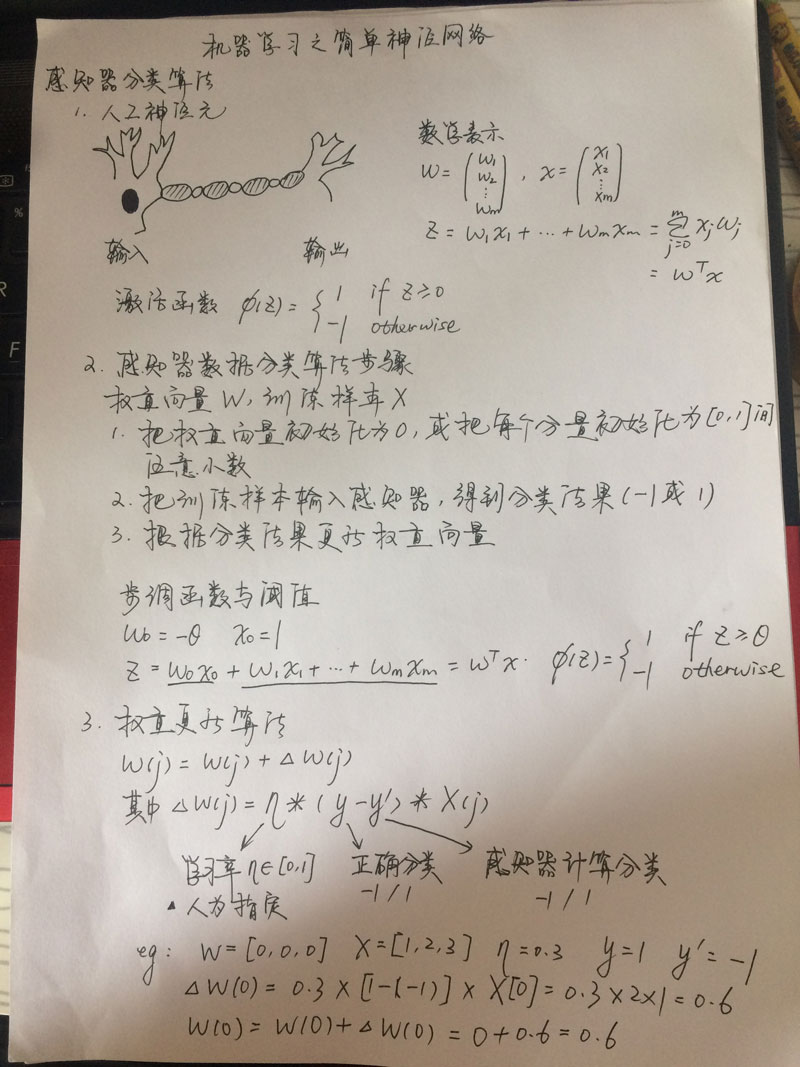 机器学习之简单神经网络
感知器分类算法
1. 人工神经元
输入 输出
数学表示
W = (w1 w2 ⋮ wm), x = (x1 x2 ⋮ xm)
Z = w1x1 + ⋯ + wmxm = ∑_{j=0}^{m} xjwj
= wᵀx
激活函数 φ(z) = { 1 if z≥0
-1 otherwise
2. 感知器数据分类算法步骤
权重向量W, 训练样本X
1. 把权重向量初始化为0, 或把每个分量初始化为[0,1]间
任意小数
2. 把训练样本输入感知器, 得到分类结果(-1或1)
3. 根据分类结果更新权重向量
步调函数与阈值
w0 = -θ x0 = 1
Z = w0x0 + w1x1 + ⋯ + wmxm = wᵀx. φ(z) = { 1 if z≥θ
-1 otherwise
3. 权重更新算法
W(j) = W(j) + △W(j)
其中 △W(j) = η * (y-y') * X(j)
学习率 η∈[0,1] 正确分类 感知器计算分类
-1/1 -1/1
▲ 人为指定
eg: W=[0,0,0] X=[1,2,3] η=0.3 y=1 y'=-1
△W(0) = 0.3 × [1-(-1)] × X[0] = 0.3×2×1 = 0.6
W(0) = W(0) + △W(0) = 0+0.6 = 0.6